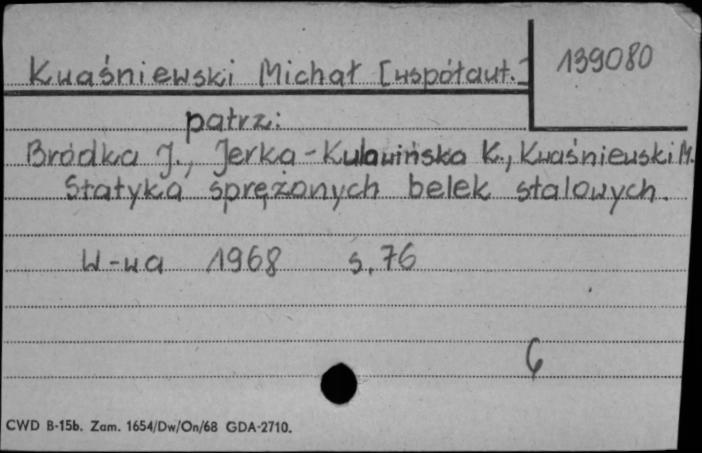 Kwaśniewski Michał [współaut.]
139080
patrz:
Bródka J., Jerka-Kulawińska K., Kwaśniewski M.
Statyka sprężonych belek stalowych.
W-wa 1968 s. 76
6
CWD B-15b. Zam. 1654/Dw/On/68 GDA-2710.